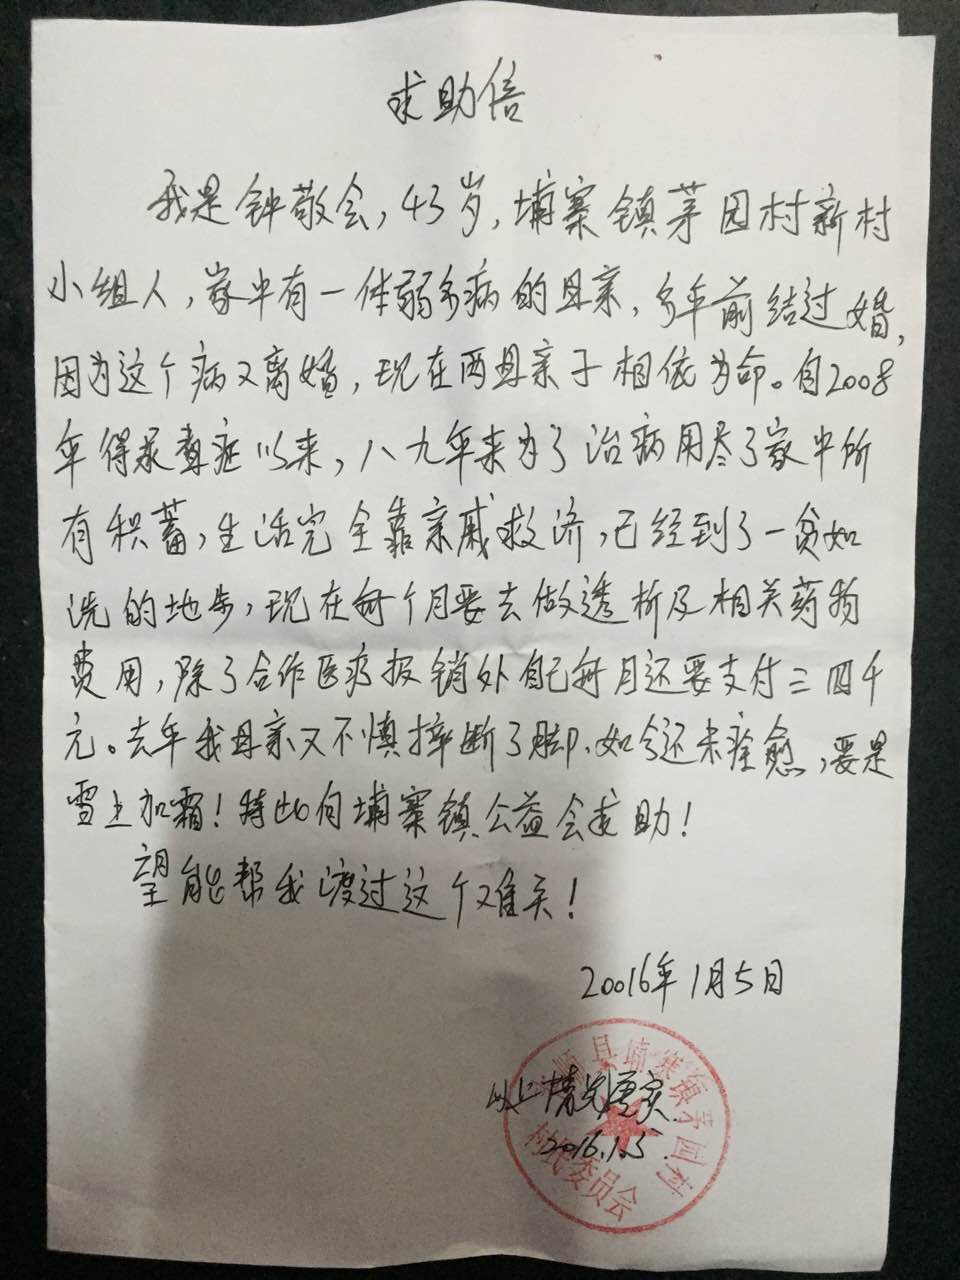 求助信
我是钟敬会,43岁,埔寨镇茅园村新村
小组人,家中有一体弱多病的母亲,多年前结过婚,
因为这个病又离婚,现在两母亲子相依为命。自2008
年得尿毒症以来,八九年来为了治病用尽了家中所
有积蓄,生活完全靠亲戚救济,已经到了一贫如
洗的地步,现在每个月要去做透析及相关药物
费用,除了合作医疗报销外自己每月还要支付三四千
元。去年我母亲又不慎摔断了脚,如今还未痊愈,要是
雪上加霜!特此向埔寨镇公益会求助!
望能帮我渡过这个难关!
20016年1月5日
以上情况属实
2016.1.5
顺县埔寨镇茅园村
村民委员会